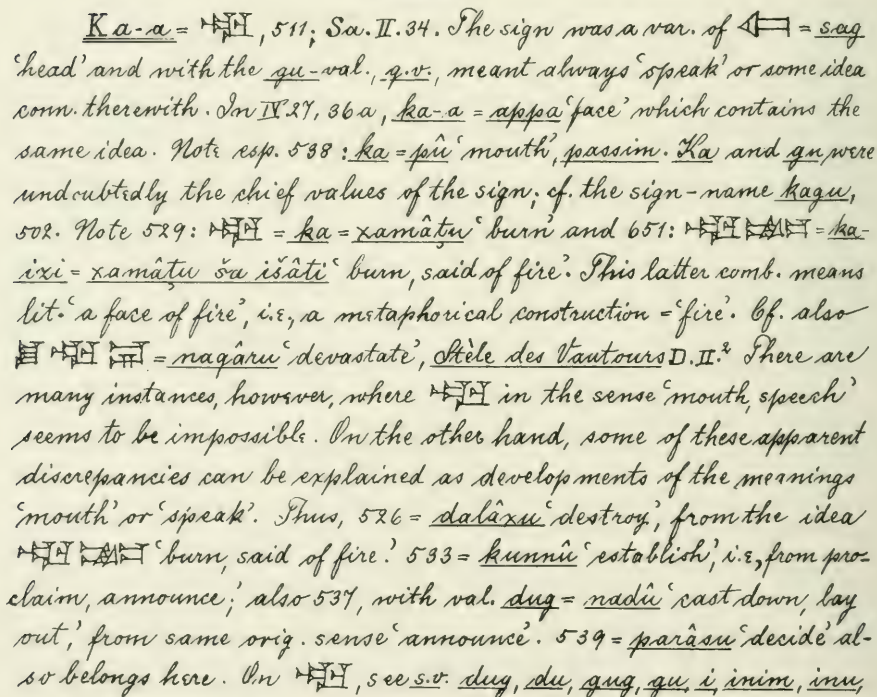 Ka-a = 𒅗, 511; Sa. II. 34. The sign was a var. of = sag
'head' and with the gu-val., q.v., meant always 'speak' or some idea
conn. therewith. In IV 27, 36a, ka-a = appa 'face' which contains the
same idea. Note esp. 538: ka = pû 'mouth', passim. Ka and gu were
undoubtedly the chief values of the sign; cf. the sign-name kagu,
502. Note 529: 𒅗 = ka = xamâṭu 'burn' and 651: 𒅗 𒉈 = ka-
izi = xamâṭu ša išâti 'burn, said of fire'. This latter comb. means
lit. 'a face of fire', i.e., a metaphorical construction = 'fire'. Cf. also
𒅗 = naqâru 'devastate', Stèle des Vautours D. II.² There are
many instances, however, where 𒅗 in the sense 'mouth, speech'
seems to be impossible. On the other hand, some of these apparent
discrepancies can be explained as developments of the meanings
'mouth' or 'speak'. Thus, 526 = dalâxu 'destroy', from the idea
𒅗 𒉈 'burn, said of fire.' 533 = kunnû 'establish', i.e., from pro-
claim, announce; also 537, with val. dug = nadû 'cast down, lay
out,' from same orig. sense 'announce'. 539 = parâsu 'decide' al-
so belongs here. On 𒅗, see s.v. dug, du, gug, gu, i, inim, inu,